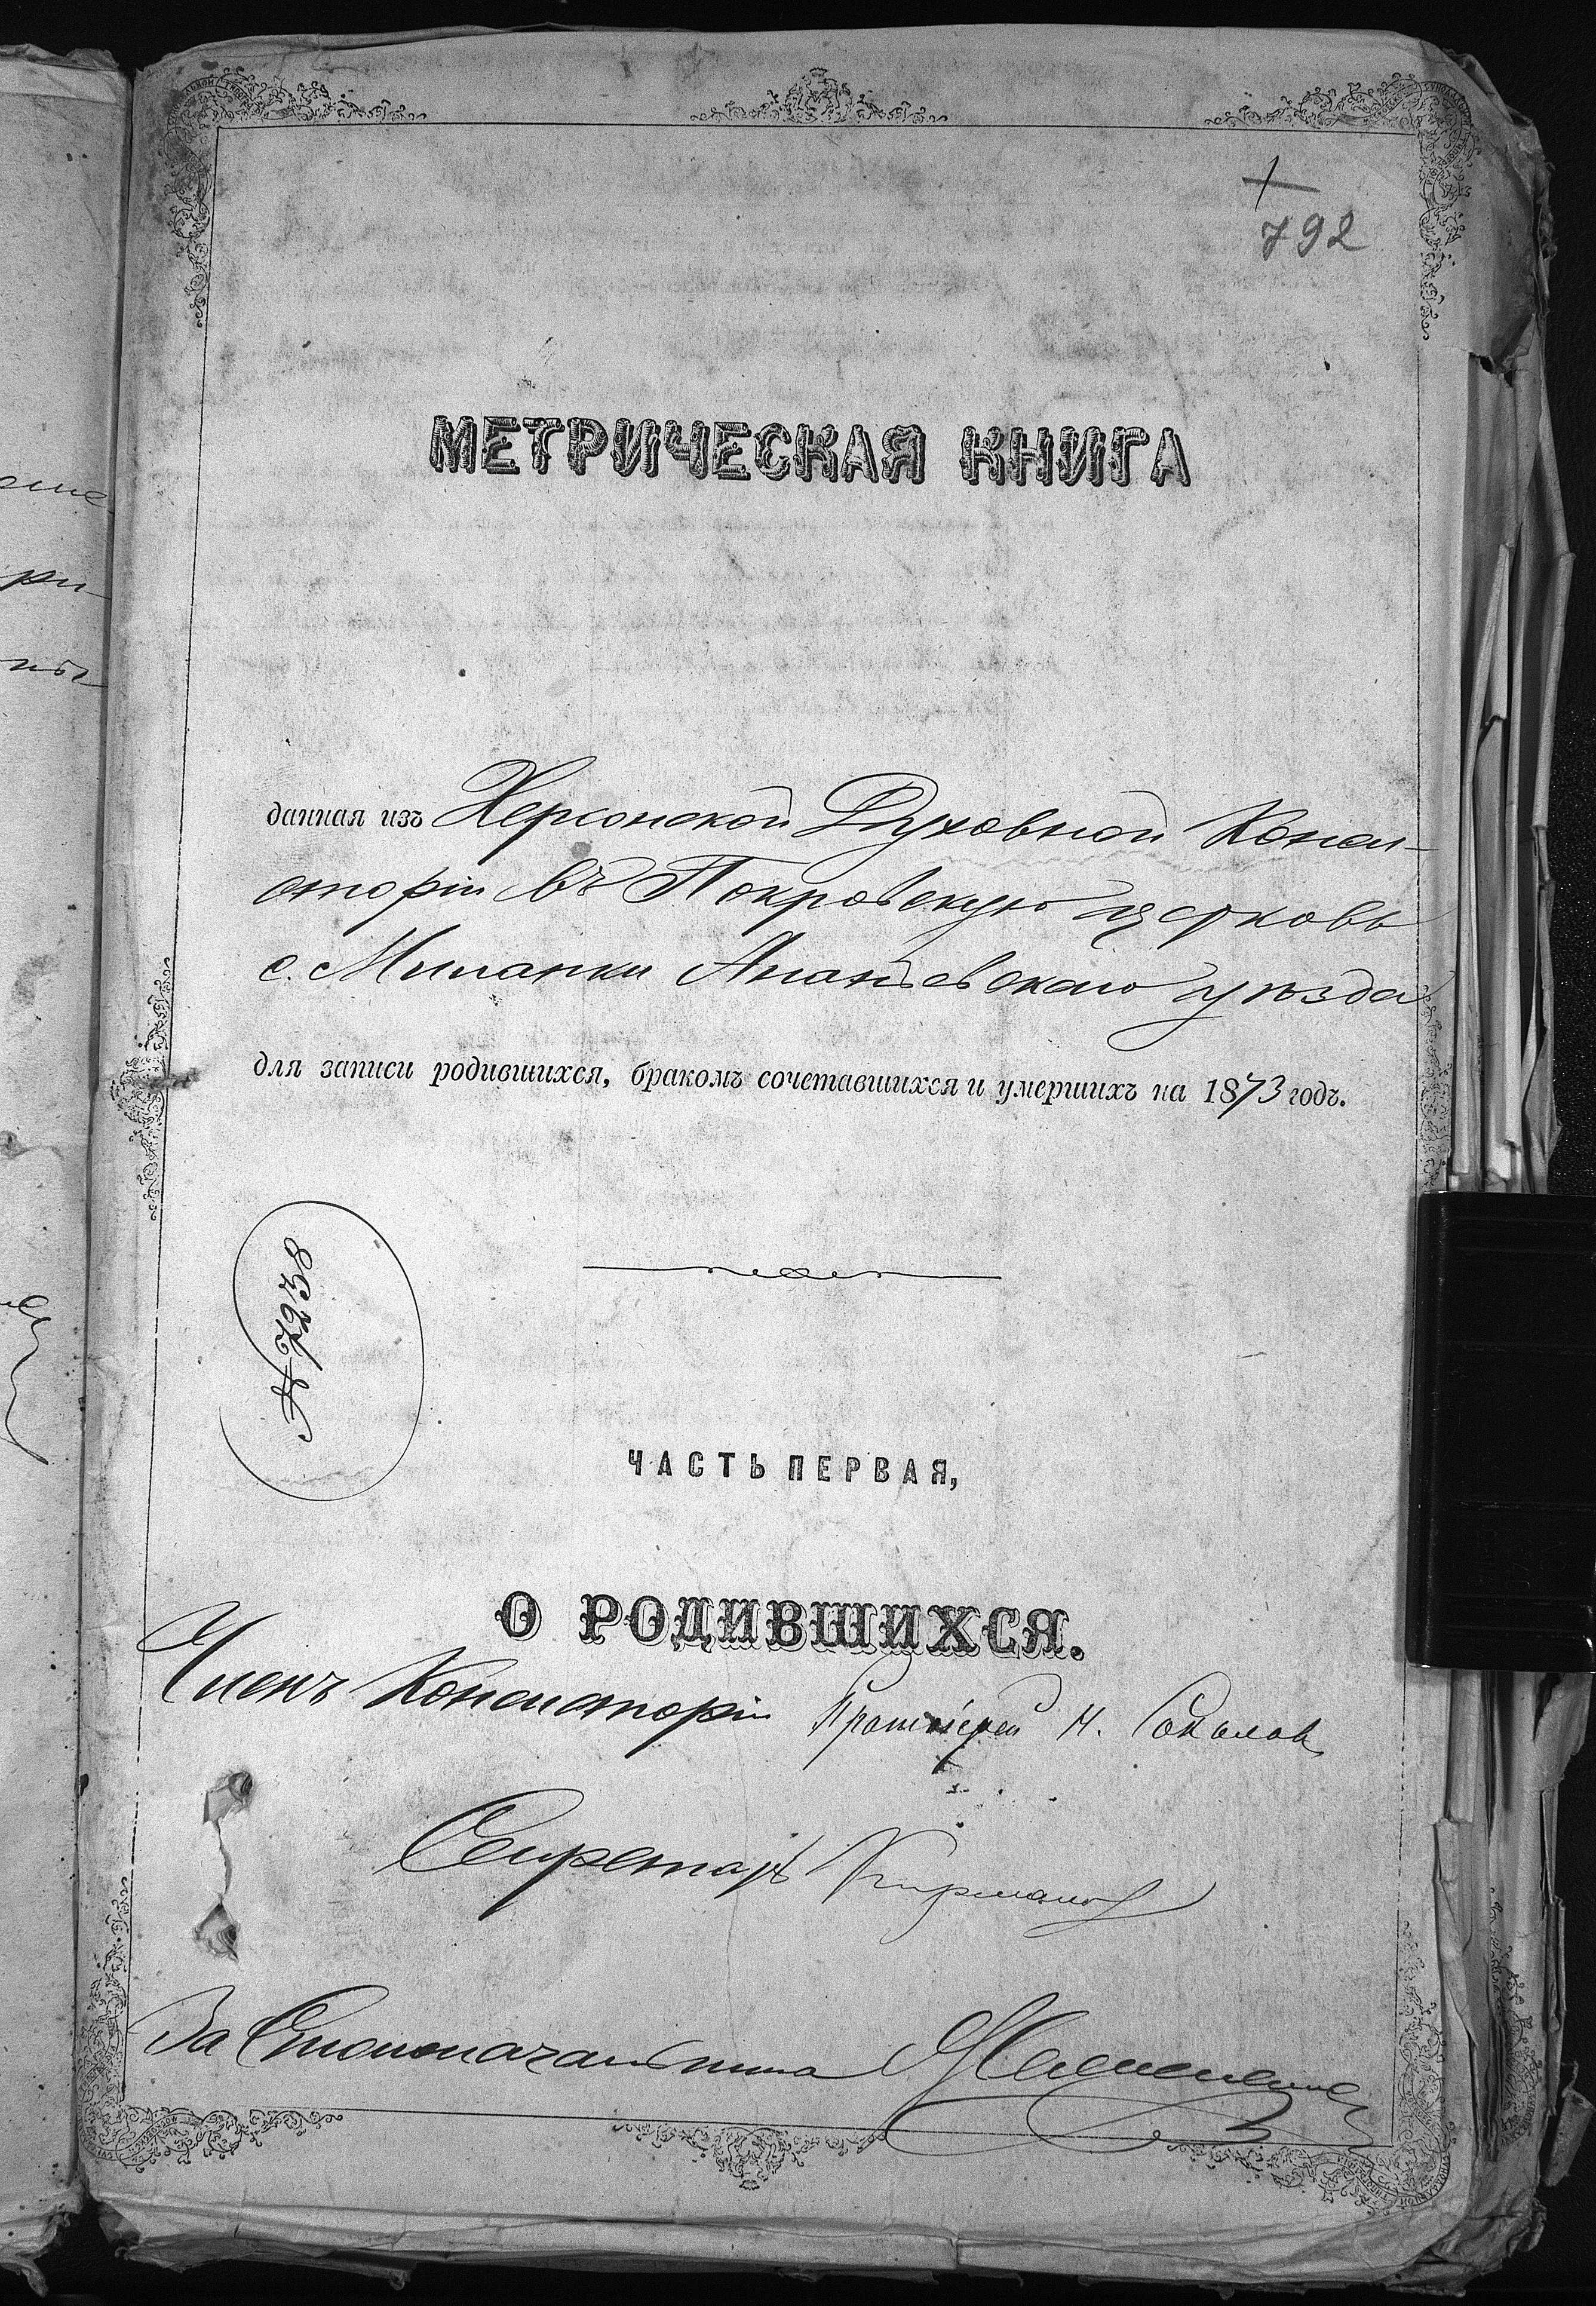 792
МЕТРИЧЕСКАЯ КНИГА
данная изъ Херсонской Духовной Консис-
торіи въ Покровскую церковь
с. Милапки Ананьевскаго уѣзда
для записи родившихся, бракомъ сочетавшихся и умершихъ на 1873 годъ.
№ 7238
ЧАСТЬ ПЕРВАЯ,
О РОДИВШИХСЯ.
Членъ Консисторіи Протоіерей Н. Соколов
Секретарь
За Столоначальника